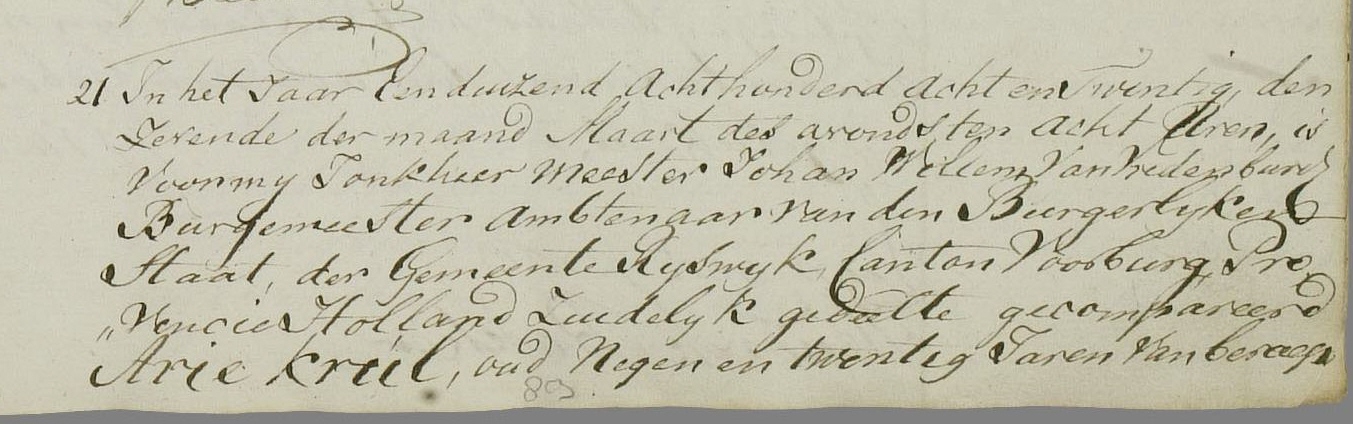 21 In het Jaar Een duizend Acht honderd Acht en Twintig, den
Zevende der maand Maart des avonds ten Acht Uren, is
Voor my Jonkheer Meester Johan Willem Van Vredenburch
Burgemeester Ambtenaar van den Burgerlyken
Staat, der Gemeente Ryswyk, Canton Voorburg, Pro-
„Vencie Holland Zuidelyk gedeelte gecompareerd
Arie Krul, oud Negen en twentig Jaren Van beroep
89